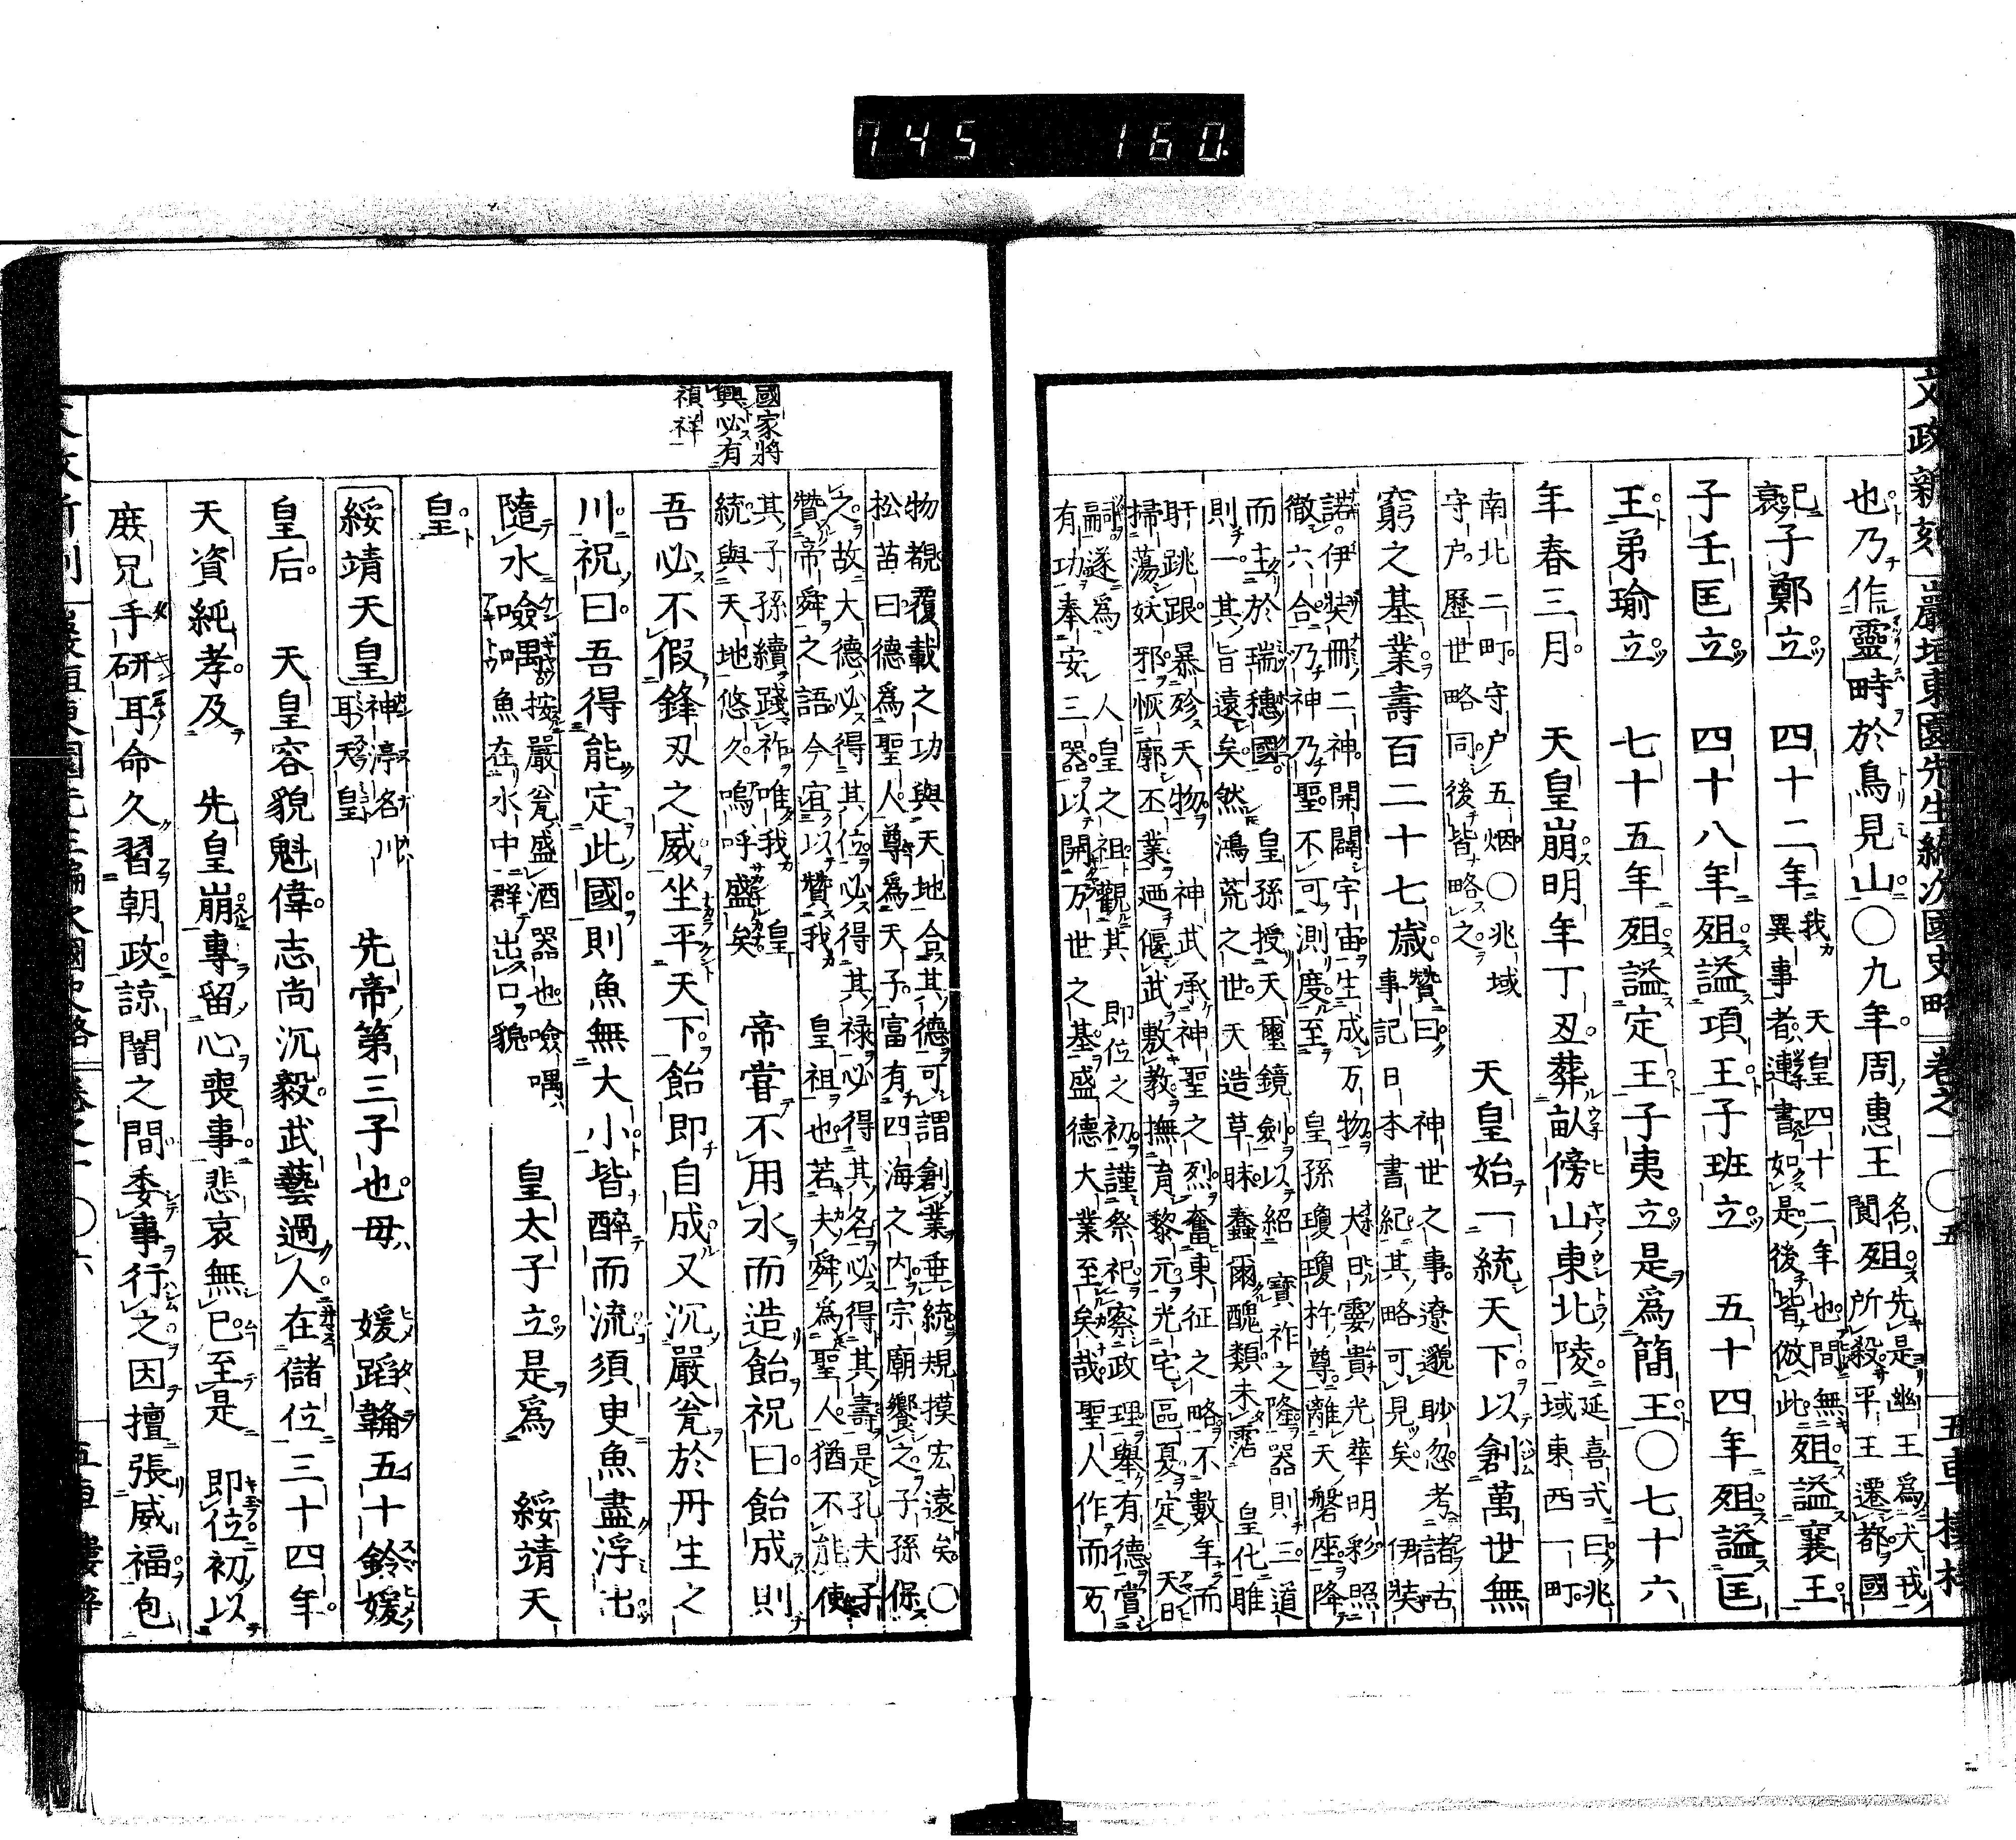 745 160.
文政新刻 巖垣東園先生編次國史略 卷之一 〇五 五車樓梓
也乃作靈畤於鳥見山〇九年周惠王名閬殂先是幽王爲犬戎所殺平王遷都國
已衰子鄭立 四十二年我 天皇四十二年也間無異事者連書如是後皆倣此殂謚襄王
子壬匡立 四十八年殂謚項王子班立 五十四年殂謚匡
王弟瑜立 七十五年殂謚定王子夷立是爲簡王〇七十六
年春三月 天皇崩明年丁丑葬畝傍山東北陵延喜式曰兆域東西一町
南北二町守户五烟〇兆域守户歷世略同後皆略之 天皇始一統天下以創萬世無
窮之基業壽百二十七歲贊曰 神世之事遼邈眇忽考諸古事記日本書紀其略可見矣 伊弉
諾伊弉冊二神開闢宇宙生成万物 大日孁貴光華明彩照徹六合乃神乃聖不可測度至 皇孫瓊瓊杵尊離天磐座降
而土於瑞穗國 皇孫授天璽鏡劍以紹 寶祚之隆器則三道則一其旨遠矣然鴻荒之世天造草昧蠢爾醜類未霑 皇化睢
盱跳踉暴殄天物 神武承神聖之烈奮東征之略不數年而掃蕩妖邪恢廓丕業廼偃武敷教撫育黎元光宅區夏定 天日
嗣遂爲 人皇之祖觀其 即位之初謹祭祀察政理舉有德嘗有功奉安三器以開万世之基盛德大業至矣哉聖人作而万
國家將興必有禎祥
物覩覆載之功與天地合其德可謂創業垂統規摸宏遠矣〇松苗曰德爲聖人尊爲天子富有四海之内宗廟饗之子孫保
之故大德必得其位必得其祿必得其名必得其壽是孔夫子贊帝舜之語今宜以贊我 皇祖也若夫舜爲聖人猶不能使
其子孫續踐祚唯我 皇統與天地悠久嗚呼盛矣 帝嘗不用水而造飴祝曰飴成則
吾必不假鋒刃之威坐平天下飴即自成又沉嚴瓮於丹生之
川祝曰吾得能定此國則魚無大小皆醉而流須臾魚盡浮出
隨水噞喁按嚴瓮盛酒器也噞喁魚在水中群出口貌 皇太子立是爲 綏靖天
皇
綏靖天皇神渟名川耳天皇 先帝第三子也毋 媛蹈韛五十鈴媛
皇后 天皇容貌魁偉志尚沉毅武藝過人在儲位三十四年
天資純孝及 先皇崩專留心喪事悲哀無已至是 即位初以
庶兄手研耳命久習朝政諒闇之間委事行之因擅張威福包